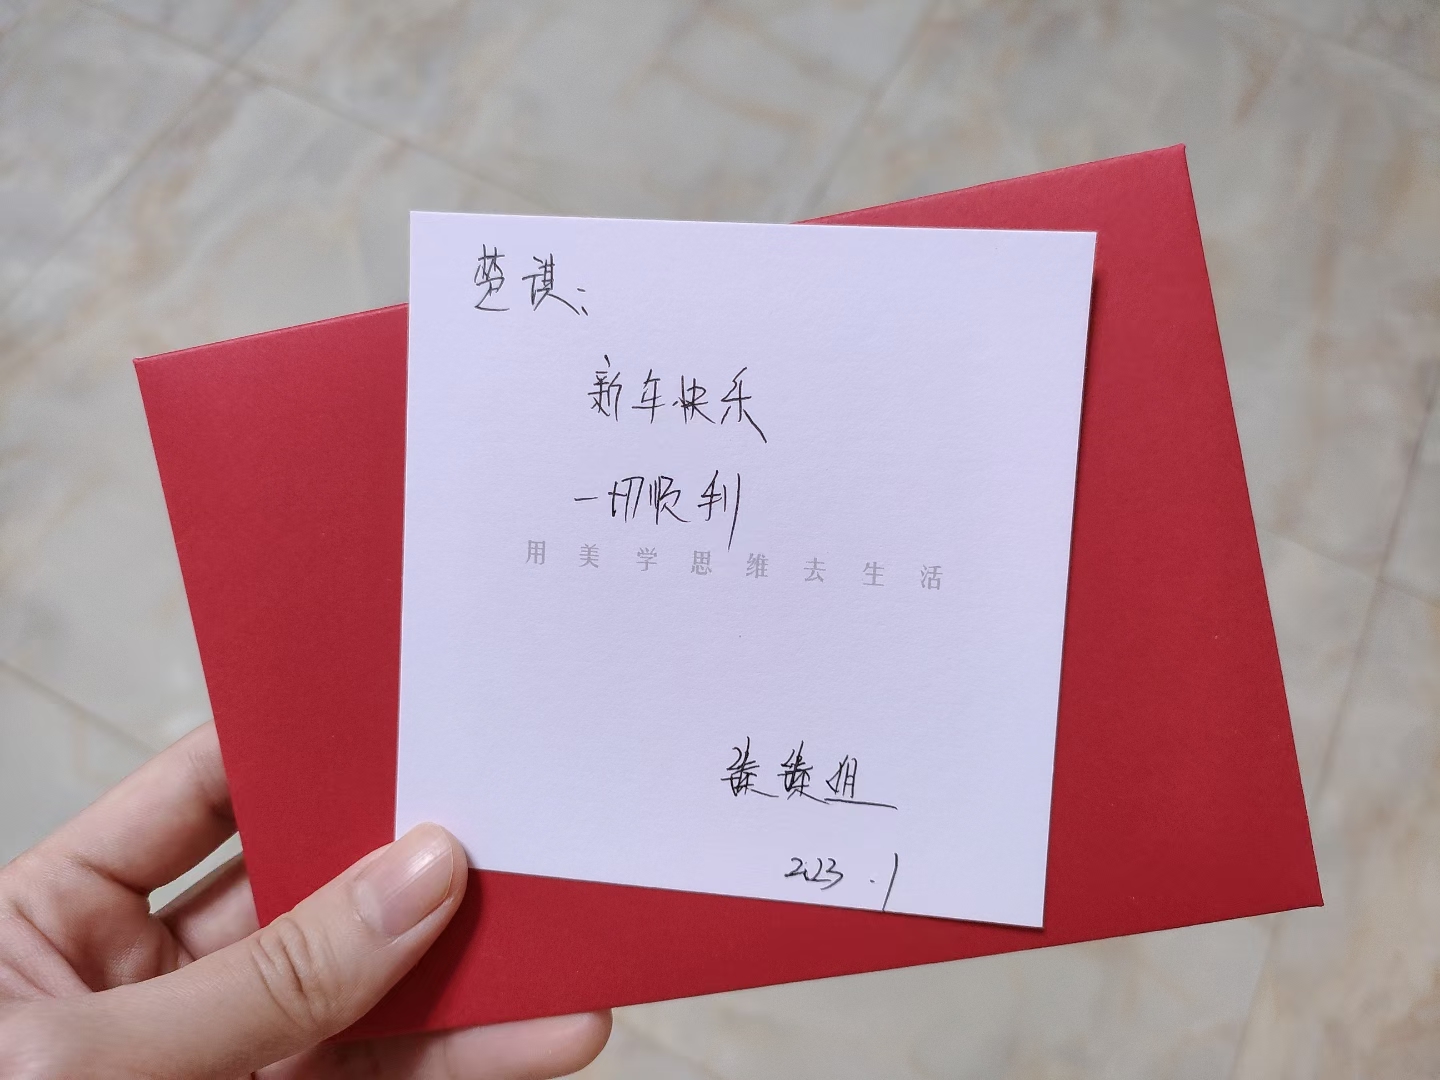 楚谋：
新年快乐
一切顺利
用美学思维去生活
蓁蓁姐
2023.1